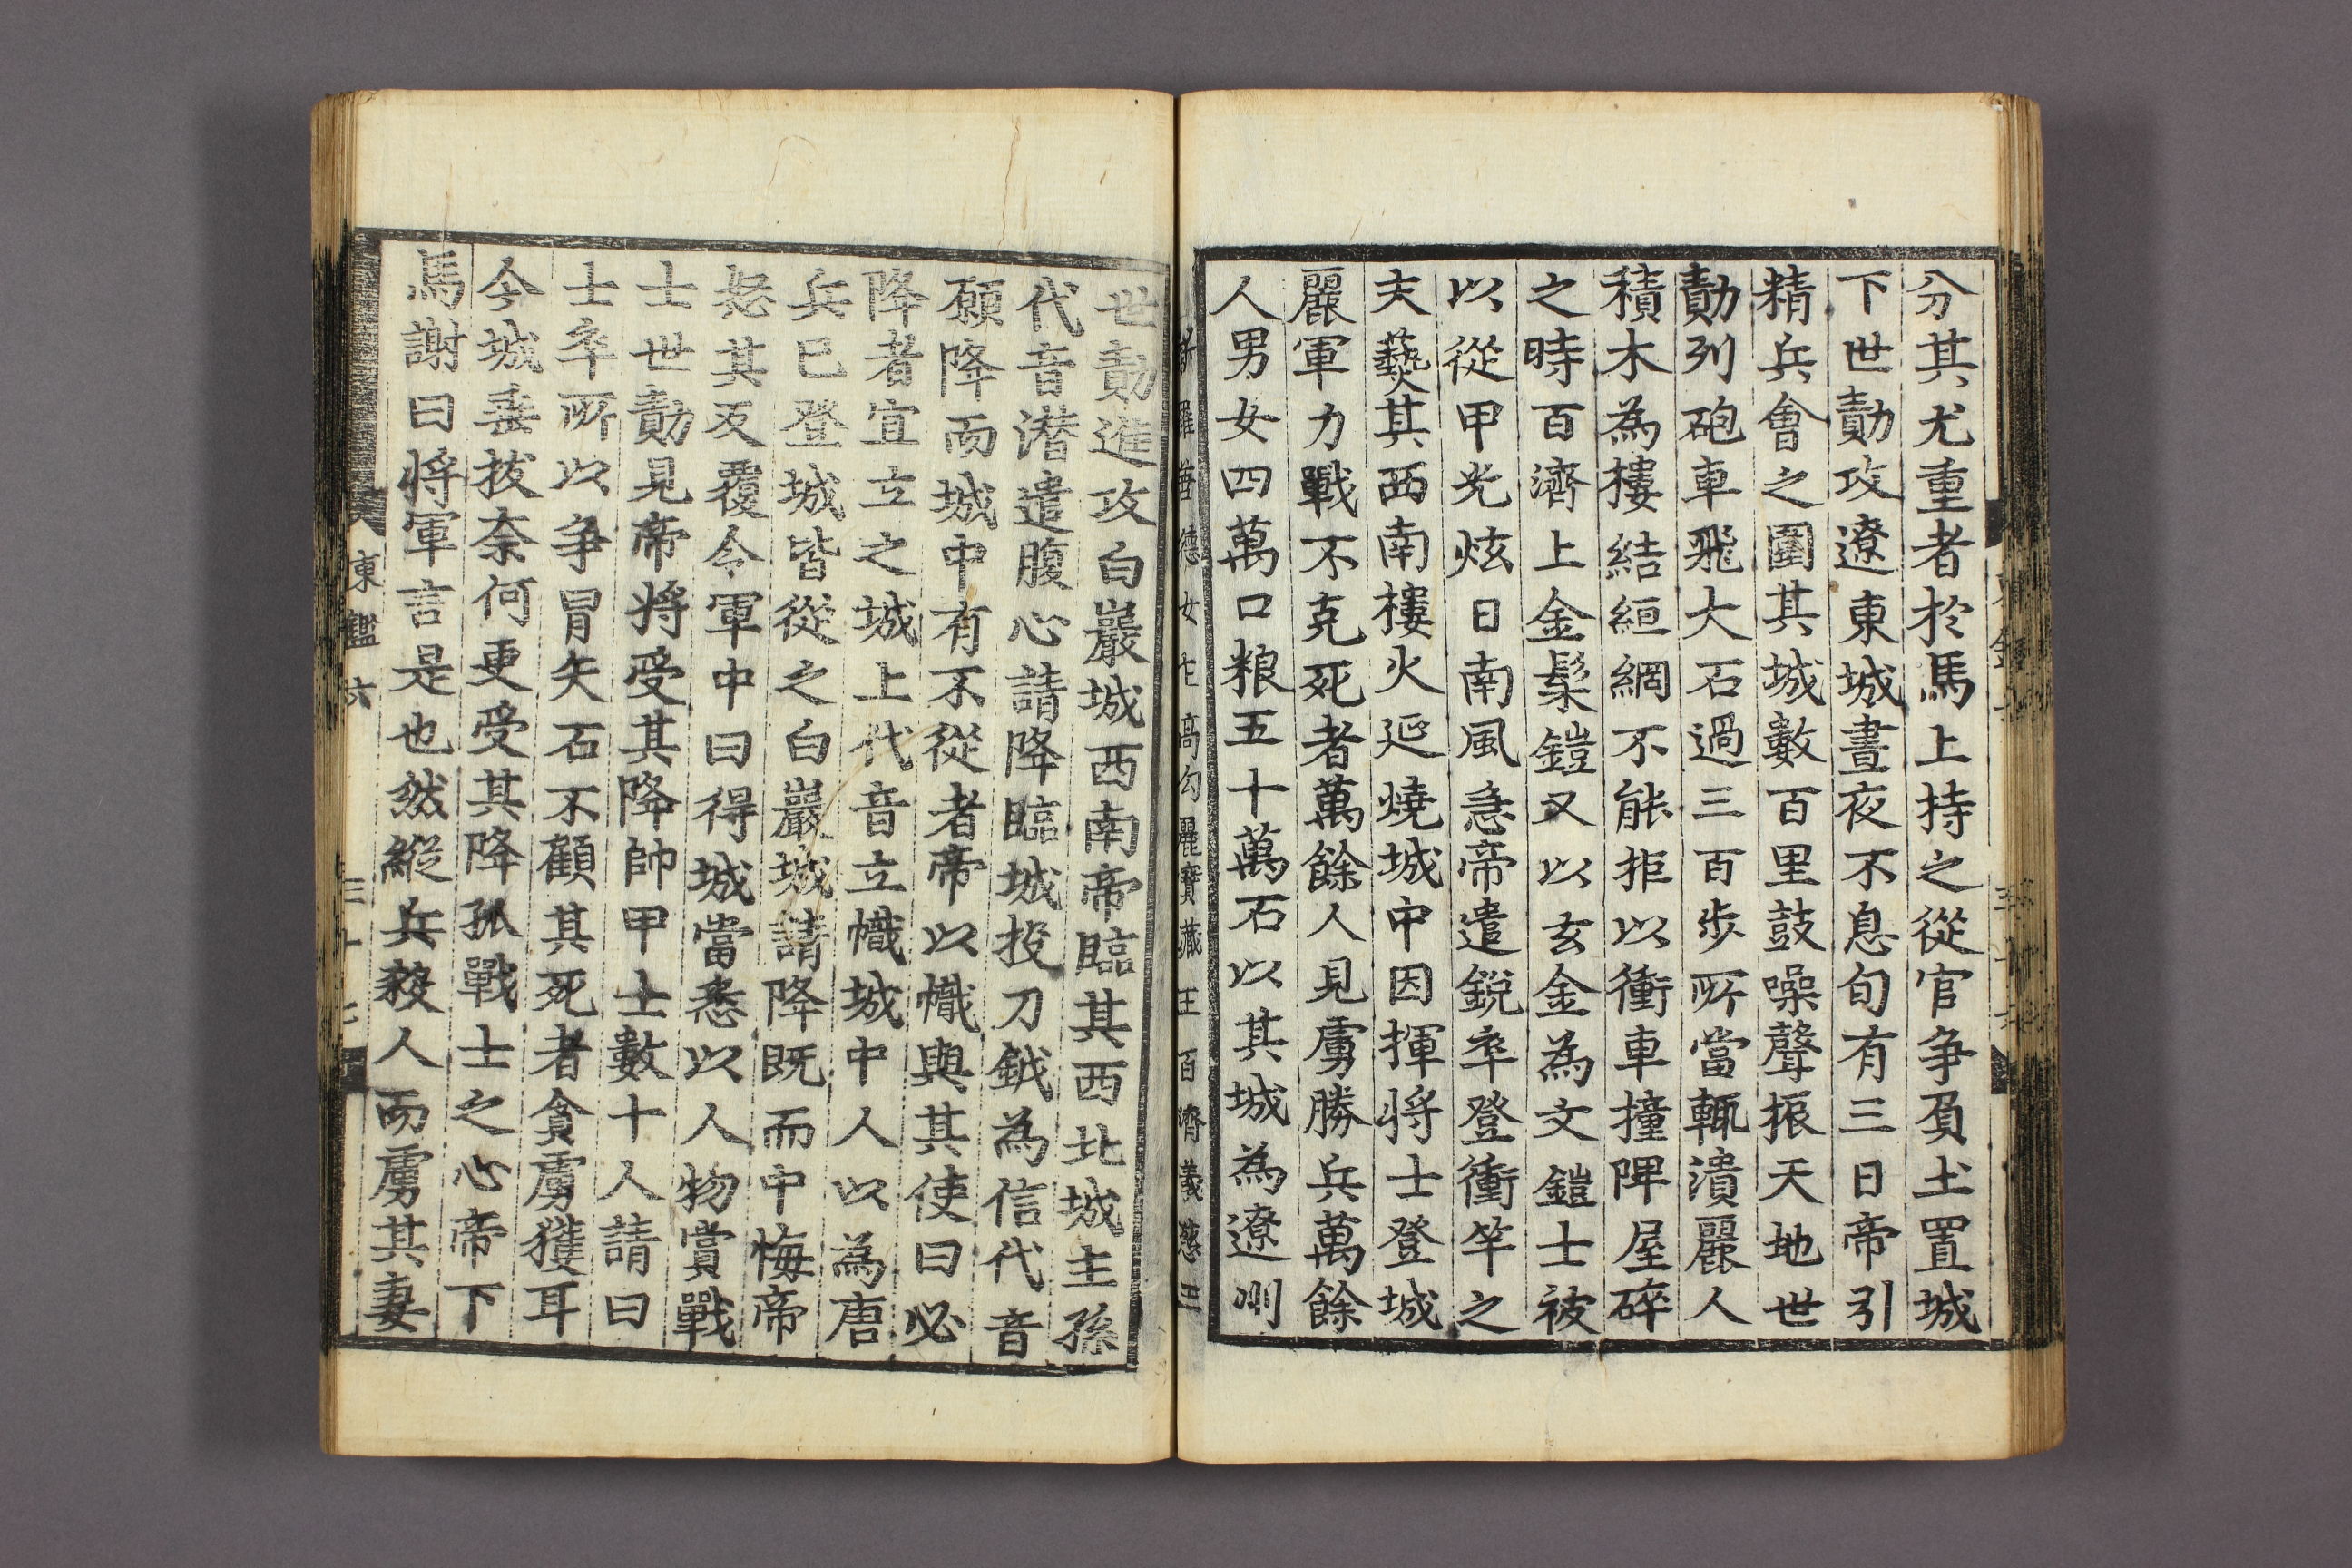 分其尤重者於馬上持之從官爭負土置城
下世勣攻遼東城晝夜不息旬有三日帝引
精兵會之圍其城數百里鼓噪聲振天地世
勣列砲車飛大石過三百步所當輒潰麗人
積木為樓結絙網不能拒以衝車撞陴屋碎
之時百濟上金髹鎧又以玄金為文鎧士被
以從甲光炫日南風急帝遣銳卒登衝竿之
末爇其西南樓火延燒城中因揮將士登城
麗軍力戰不克死者萬餘人見虜勝兵萬餘
人男女四萬口粮五十萬石以其城為遼州
新羅善德女主 高句麗寶藏王 百濟義慈王
世勣進攻白巖城西南帝臨其西北城主孫
代音潛遣腹心請降臨城投刀鉞為信代音
願降而城中有不從者帝以幟與其使曰必
降者宜立之城上代音立幟城中人以為唐
兵已登城皆從之白巖城請降既而中悔帝
怒其反覆令軍中曰得城當悉以人物賞戰
士世勣見帝將受其降帥甲士數十人請曰
士卒所以爭冒矢石不顧其死者貪虜獲耳
今城垂拔奈何更受其降孤戰士之心帝下
馬謝曰將軍言是也然縱兵殺人而虜其妻
東鑑六 三十七